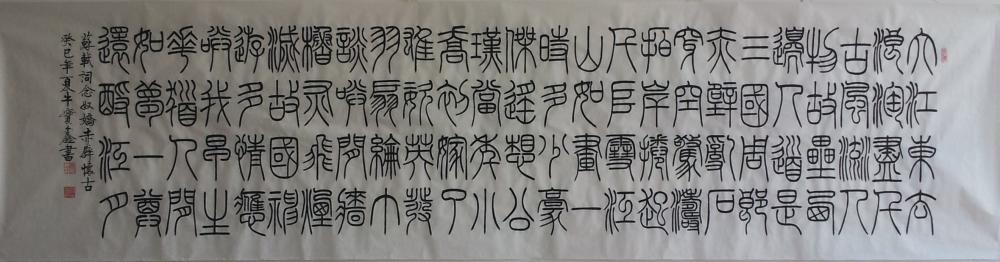 大江東去
浪淘盡千
古風流人
物故壘西
邊人道是
三國周郎
赤壁亂石
穿空驚濤
拍岸捲起
千堆雪江
山如畫一
時多少豪
傑遙想公
瑾當年小
喬初嫁了
雄姿英發
羽扇綸巾
談笑間檣
櫓灰飛煙
滅故國神
遊多情應
笑我早生
華髮人間
如夢一尊
還酹江月
蘇軾詞念奴嬌赤壁懷古
癸巳年夏牛寶書